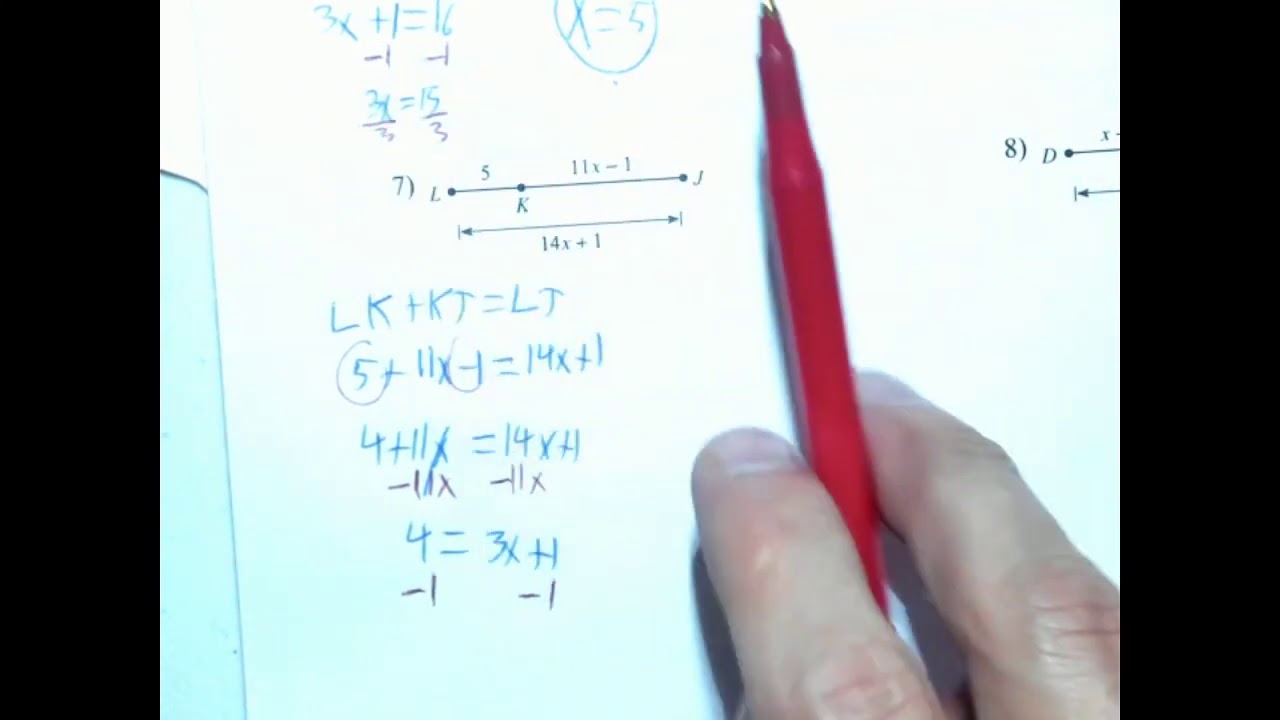 3x + 1 = 16
-1 -1
3x = 15
3 3
x = 5
7) L 5 K 11x − 1 J
14x + 1
8) D x
LK + KJ = LJ
5 + 11x - 1 = 14x + 1
4 + 11x = 14x + 1
-11x -11x
4 = 3x + 1
-1 -1